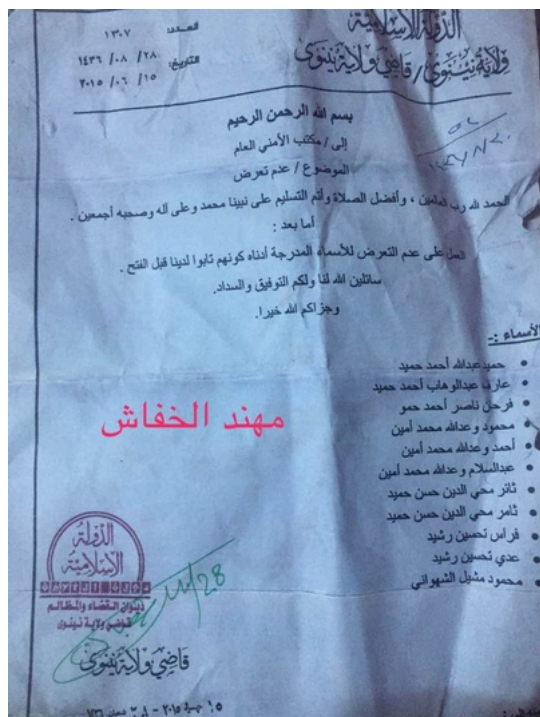 الدولة الإسلامية
ولاية نينوى / قاضي ولاية نينوى
العدد: ١٣٠٧
التاريخ: ٢٨ / ٠٨ / ١٤٣٦
١٥ / ٠٦ / ٢٠١٥
بسم الله الرحمن الرحيم
إلى / مكتب الأمني العام
الموضوع / عدم تعرض
الحمد لله رب العالمين ، وأفضل الصلاة وأتم التسليم على نبينا محمد وعلى آله وصحبه أجمعين .
أما بعد :
العمل على عدم التعرض للأسماء المدرجة أدناه كونهم تابوا لدينا قبل الفتح .
سائلين الله لنا ولكم التوفيق والسداد.
وجزاكم الله خيرا.
الأسماء :-
• حميد عبدالله أحمد حميد
• عارف عبدالوهاب أحمد حميد
• فرحان ناصر أحمد حمو
• محمود وعدالله محمد أمين
• أحمد وعدالله محمد أمين
• عبدالسلام وعدالله محمد أمين
• ثائر محي الدين حسن حميد
• ثامر محي الدين حسن حميد
• فراس تحسين رشيد
• عدي تحسين رشيد
• محمود مشيل الشهواني
مهند الخفاش
الدولة
الإسلامية
ديوان القضاء والمظالم
قاضي ولاية نينوى
قاضي ولاية نينوى